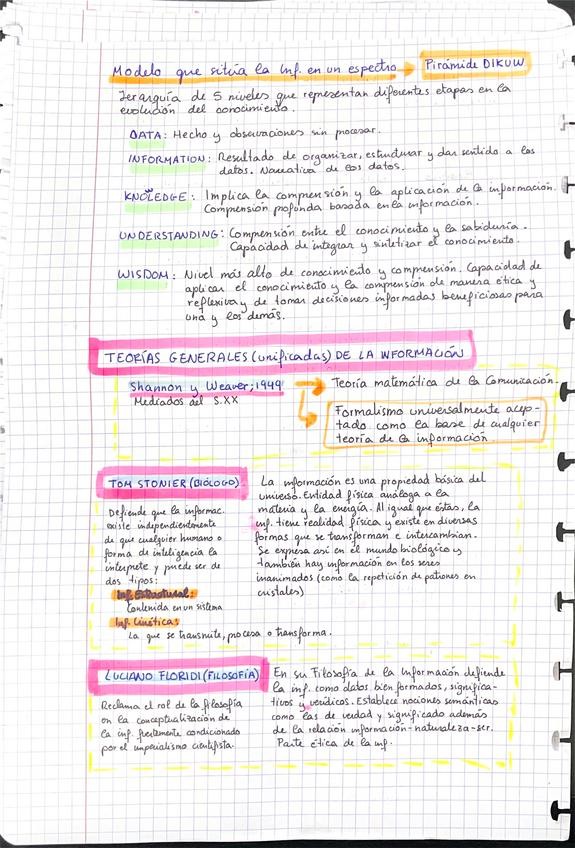 Modelo que sitúa la Inf. en un espectro → Pirámide DIKUW
Jerarquía de 5 niveles que representan diferentes etapas en la
evolución del conocimiento.
DATA: Hecho y observaciones sin procesar.
INFORMATION: Resultado de organizar, estructurar y dar sentido a los
datos. Narrativa de los datos.
KNOWLEDGE: Implica la comprensión y la aplicación de la información.
Comprensión profunda basada en la información.
UNDERSTANDING: Comprensión entre el conocimiento y la sabiduría.
Capacidad de integrar y sintetizar el conocimiento.
WISDOM: Nivel más alto de conocimiento y comprensión. Capacidad de
aplicar el conocimiento y la comprensión de manera ética y
reflexiva y de tomar decisiones informadas beneficiosas para
una y los demás.
TEORÍAS GENERALES (unificadas) DE LA INFORMACIÓN
Shannon y Weaver, 1949 → Teoría matemática de la Comunicación.
Mediados del S.XX
Formalismo universalmente acep-
tado como la base de cualquier
teoría de la información
TOM STONIER (BIÓLOGO)
Defiende que la informac.
existe independientemente
de que cualquier humano o
forma de inteligencia la
interprete y puede ser de
dos tipos:
Inf. Estructural:
Contenida en un sistema
Inf. Cinética:
La que se transmite, procesa o transforma.
La información es una propiedad básica del
universo. Entidad física análoga a la
materia y la energía. Al igual que éstas, la
inf. tiene realidad física y existe en diversas
formas que se transforman e intercambian.
Se expresa así en el mundo biológico y
también hay información en los seres
inanimados (como la repetición de patrones en
cristales)
LUCIANO FLORIDI (FILOSOFÍA)
Reclama el rol de la filosofía
en la conceptualización de
la inf. fuertemente condicionado
por el imperialismo cientifista.
En su Filosofía de la Información defiende
la inf. como datos bien formados, significa-
tivos y verídicos. Establece nociones semánticas
como las de verdad y significado además
de la relación información-naturaleza-ser.
Parte ética de la inf.